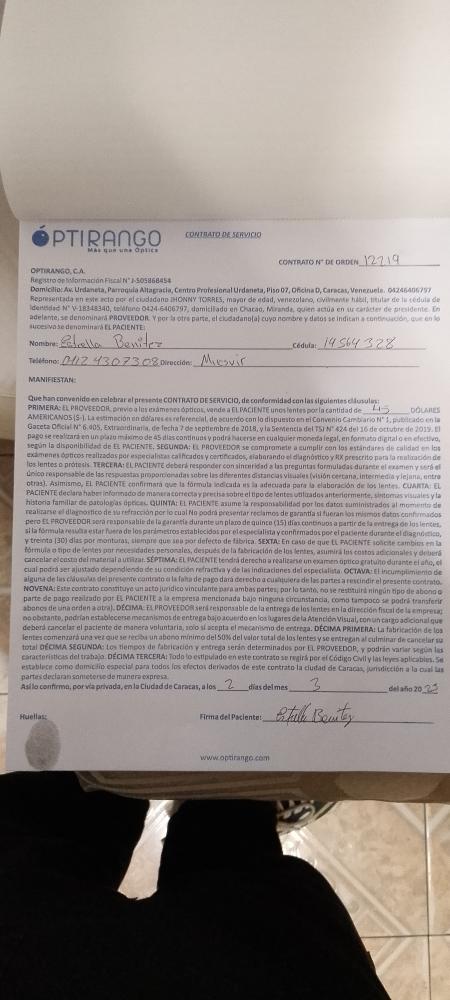 ÓPTIRANGO
Más que una Óptica
CONTRATO DE SERVICIO
CONTRATO N° DE ORDEN 12719
OPTIRANGO, C.A.
Registro de Información Fiscal N° J-505868454
Domicilio: Av. Urdaneta, Parroquia Altagracia, Centro Profesional Urdaneta, Piso 07, Oficina D, Caracas, Venezuela. 04246406797
Representada en este acto por el ciudadano JHONNY TORRES, mayor de edad, venezolano, civilmente hábil, titular de la cédula de
identidad N° V-18348340, teléfono 0424-6406797, domiciliado en Chacao, Miranda, quien actúa en su carácter de presidente. En
adelante, se denominará PROVEEDOR. Y por la otra parte, el ciudadano(a) cuyo nombre y datos se indican a continuación, que en lo
sucesivo se denominará EL PACIENTE:
Nombre: Estrella Benitez Cédula: 14564328
Teléfono: 0412 4307308 Dirección:
MANIFIESTAN:
Que han convenido en celebrar el presente CONTRATO DE SERVICIO, de conformidad con las siguientes cláusulas:
PRIMERA: EL PROVEEDOR, previo a los exámenes ópticos, vende a EL PACIENTE unos lentes por la cantidad de 45 DÓLARES
AMERICANOS ($-). La estimación en dólares es referencial, de acuerdo con lo dispuesto en el Convenio Cambiario N° 1, publicado en la
Gaceta Oficial N° 6.405, Extraordinaria, de fecha 7 de septiembre de 2018, y la Sentencia del TSJ N° 424 del 16 de octubre de 2019. El
pago se realizará en un plazo máximo de 45 días continuos y podrá hacerse en cualquier moneda legal, en formato digital o en efectivo,
según la disponibilidad de EL PACIENTE. SEGUNDA: EL PROVEEDOR se compromete a cumplir con los estándares de calidad en los
exámenes ópticos realizados por especialistas calificados y certificados, elaborando el diagnóstico y RX prescrito para la realización de
los lentes o prótesis. TERCERA: EL PACIENTE deberá responder con sinceridad a las preguntas formuladas durante el examen y será el
único responsable de las respuestas proporcionadas sobre las diferentes distancias visuales (visión cercana, intermedia y lejana, entre
otras). Asimismo, EL PACIENTE confirmará que la fórmula indicada es la adecuada para la elaboración de los lentes. CUARTA: EL
PACIENTE declara haber informado de manera correcta y precisa sobre el tipo de lentes utilizados anteriormente, síntomas visuales y la
historia familiar de patologías ópticas. QUINTA: EL PACIENTE asume la responsabilidad por los datos suministrados al momento de
realizarse el diagnostico de su refracción por lo cual No podrá presentar reclamos de garantía si fueran los mismos datos confirmados
pero EL PROVEEDOR será responsable de la garantía durante un plazo de quince (15) días continuos a partir de la entrega de los lentes,
si la fórmula resulta estar fuera de los parámetros establecidos por el especialista y confirmados por el paciente durante el diagnóstico,
y treinta (30) días por monturas, siempre que sea por defecto de fábrica. SEXTA: En caso de que EL PACIENTE solicite cambios en la
fórmula o tipo de lentes por necesidades personales, después de la fabricación de los lentes, asumirá los costos adicionales y deberá
cancelar el costo del material a utilizar. SÉPTIMA: EL PACIENTE tendrá derecho a realizarse un examen óptico gratuito durante el año, el
cual podrá ser ajustado dependiendo de su condición refractiva y de las indicaciones del especialista. OCTAVA: El incumplimiento de
alguna de las cláusulas del presente contrato o la falta de pago dará derecho a cualquiera de las partes a rescindir el presente contrato.
NOVENA: Este contrato constituye un acto jurídico vinculante para ambas partes; por lo tanto, no se restituirá ningún tipo de abono o
parte de pago realizado por EL PACIENTE a la empresa mencionada bajo ninguna circunstancia, como tampoco se podrá transferir
abonos de una orden a otra). DÉCIMA: EL PROVEEDOR será responsable de la entrega de los lentes en la dirección fiscal de la empresa;
no obstante, podrían establecerse mecanismos de entrega bajo acuerdo en los lugares de la Atención Visual, con un cargo adicional que
deberá cancelar el paciente de manera voluntaria, solo si acepta el mecanismo de entrega. DÉCIMA PRIMERA: La fabricación de los
lentes comenzará una vez que se reciba un abono mínimo del 50% del valor total de los lentes y se entregan al culminar de cancelar su
total DÉCIMA SEGUNDA: Los tiempos de fabricación y entrega serán determinados por EL PROVEEDOR, y podrán variar según las
características del trabajo. DÉCIMA TERCERA: Todo lo estipulado en este contrato se regirá por el Código Civil y las leyes aplicables. Se
establece como domicilio especial para todos los efectos derivados de este contrato la ciudad de Caracas, jurisdicción a la cual las
partes declaran someterse de manera expresa.
Así lo confirmo, por vía privada, en la Ciudad de Caracas, a los 2 días del mes 3 del año 2025
Huellas: Firma del Paciente: Estrella Benitez
www.optirango.com